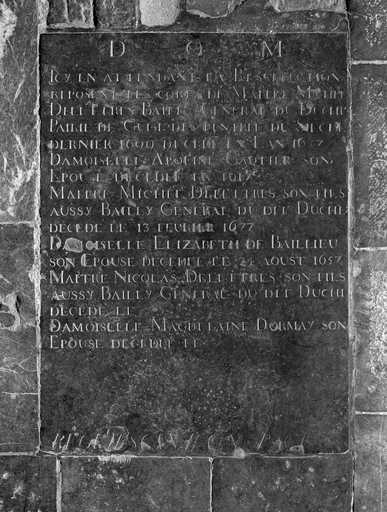 D O M
ICY EN ATTENDANT LA RESURECTION
REPOSENT LES CORPS DE MAITRE MICHEL
DELETTRES BAILLY GENERAL DU DUCHE
PAIRIE DE
DERNIER 1600 DECEDE EN L'AN
DAMOISELLE GAUTIER SON
EPOUSE DECEDEE EN
MAITRE MICHEL DELETTRES SON FILS
AUSSY BAILLY GENERAL DU DIT DUCHE
DECEDE LE 13 FEVRIER 1677
DAMOISELLE ELIZABETH DE BAILLIEU
SON EPOUSE DECEDEE LE 24 AOUST 1657
MAITRE NICOLAS DELETTRES SON FILS
AUSSY BAILLY GENERAL DU DIT DUCHE
DECEDE LE
DAMOISELLE MAGDELAINE DORMAY SON
EPOUSE DECEDEE LE